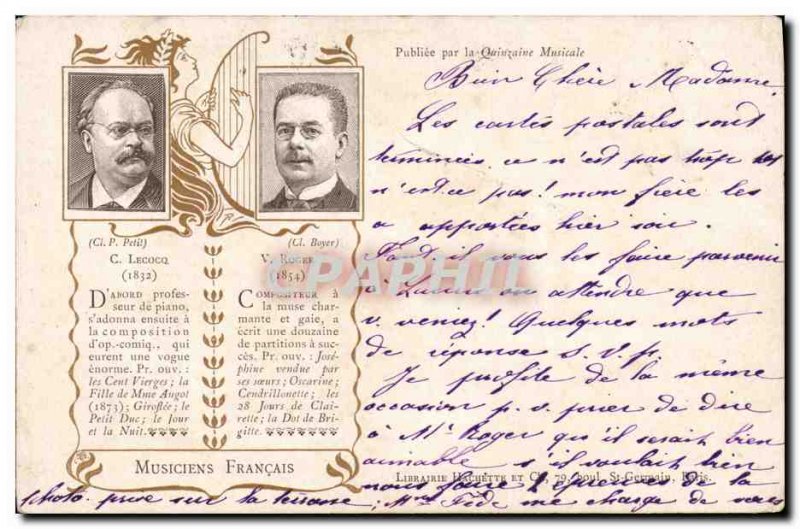 Publiée par la Quinzaine Musicale
(Cl. P. Petit)
C. LECOCQ
(1832)
D'ABORD profes-
seur de piano,
s'adonna ensuite à
la composition
d'op.-comiq., qui
eurent une vogue
énorme. Pr. ouv. :
les Cent Vierges ; la
Fille de Mme Angot
(1873) ; Giroflée ; le
Petit Duc ; le Jour
et la Nuit.
(Cl. Boyer)
V. ROGER
(1854)
COMPOSITEUR à
la muse char-
mante et gaie, a
écrit une douzaine
de partitions à suc-
cès. Pr. ouv. : José-
phine vendue par
ses sœurs ; Oscarine ;
Cendrillonette ; les
28 Jours de Clai-
rette ; la Dot de Bri-
gitte.
MUSICIENS FRANÇAIS
Bien Chère Madame,
Les cartes postales sont
terminées. ce n'est pas trop tôt
n'est-ce pas ! mon frère les
a apportées hier soir.
Faut-il vous les faire parvenir
à ou attendre que
v. veniez ! Quelques mots
de réponse s. v. p.
Je profite de la même
occasion p. v. prier de dire
à Mr Roger qu'il serait bien
aimable s'il voulait bien
nous faire l'épreuve de la
photo. prise sur la terrasse ; Me me charge de vous
LIBRAIRIE HACHETTE ET Cie, 79, boul. St-Germain, Paris.
CPAPHIL